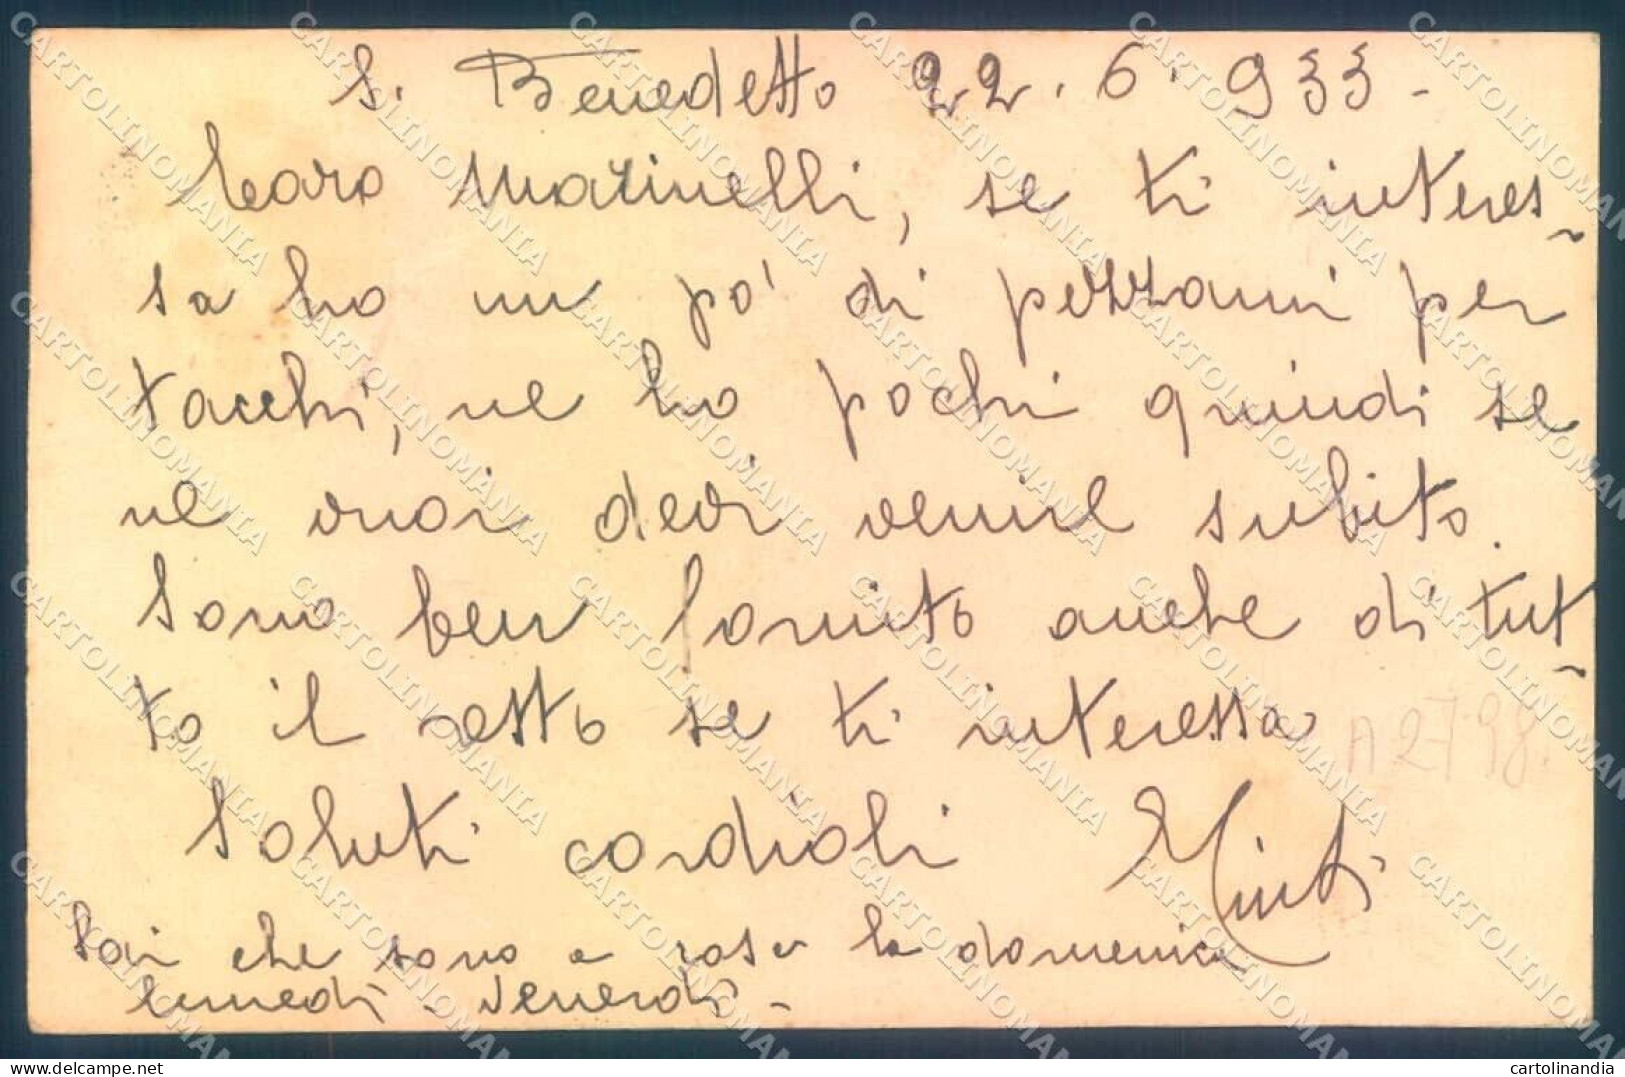 S. Benedetto 22.6.933-
Caro Marinelli, se ti interes-
sa ho un po' di pezzami per
tacchi, ne ho pochi quindi se
ne vuoi devi venire subito.
Sono ben fornito anche di tut-
to il resto se ti interessa
A2798.
Saluti cordiali
Sai che sono a casa la domenica
lunedì - Venerdì -
www.delcampe.net
cartolinandia
CARTOLINOMANIA